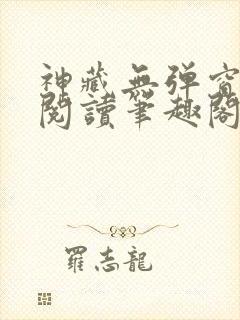 神藏無彈窗
閱讀筆趣閣
羅志龍